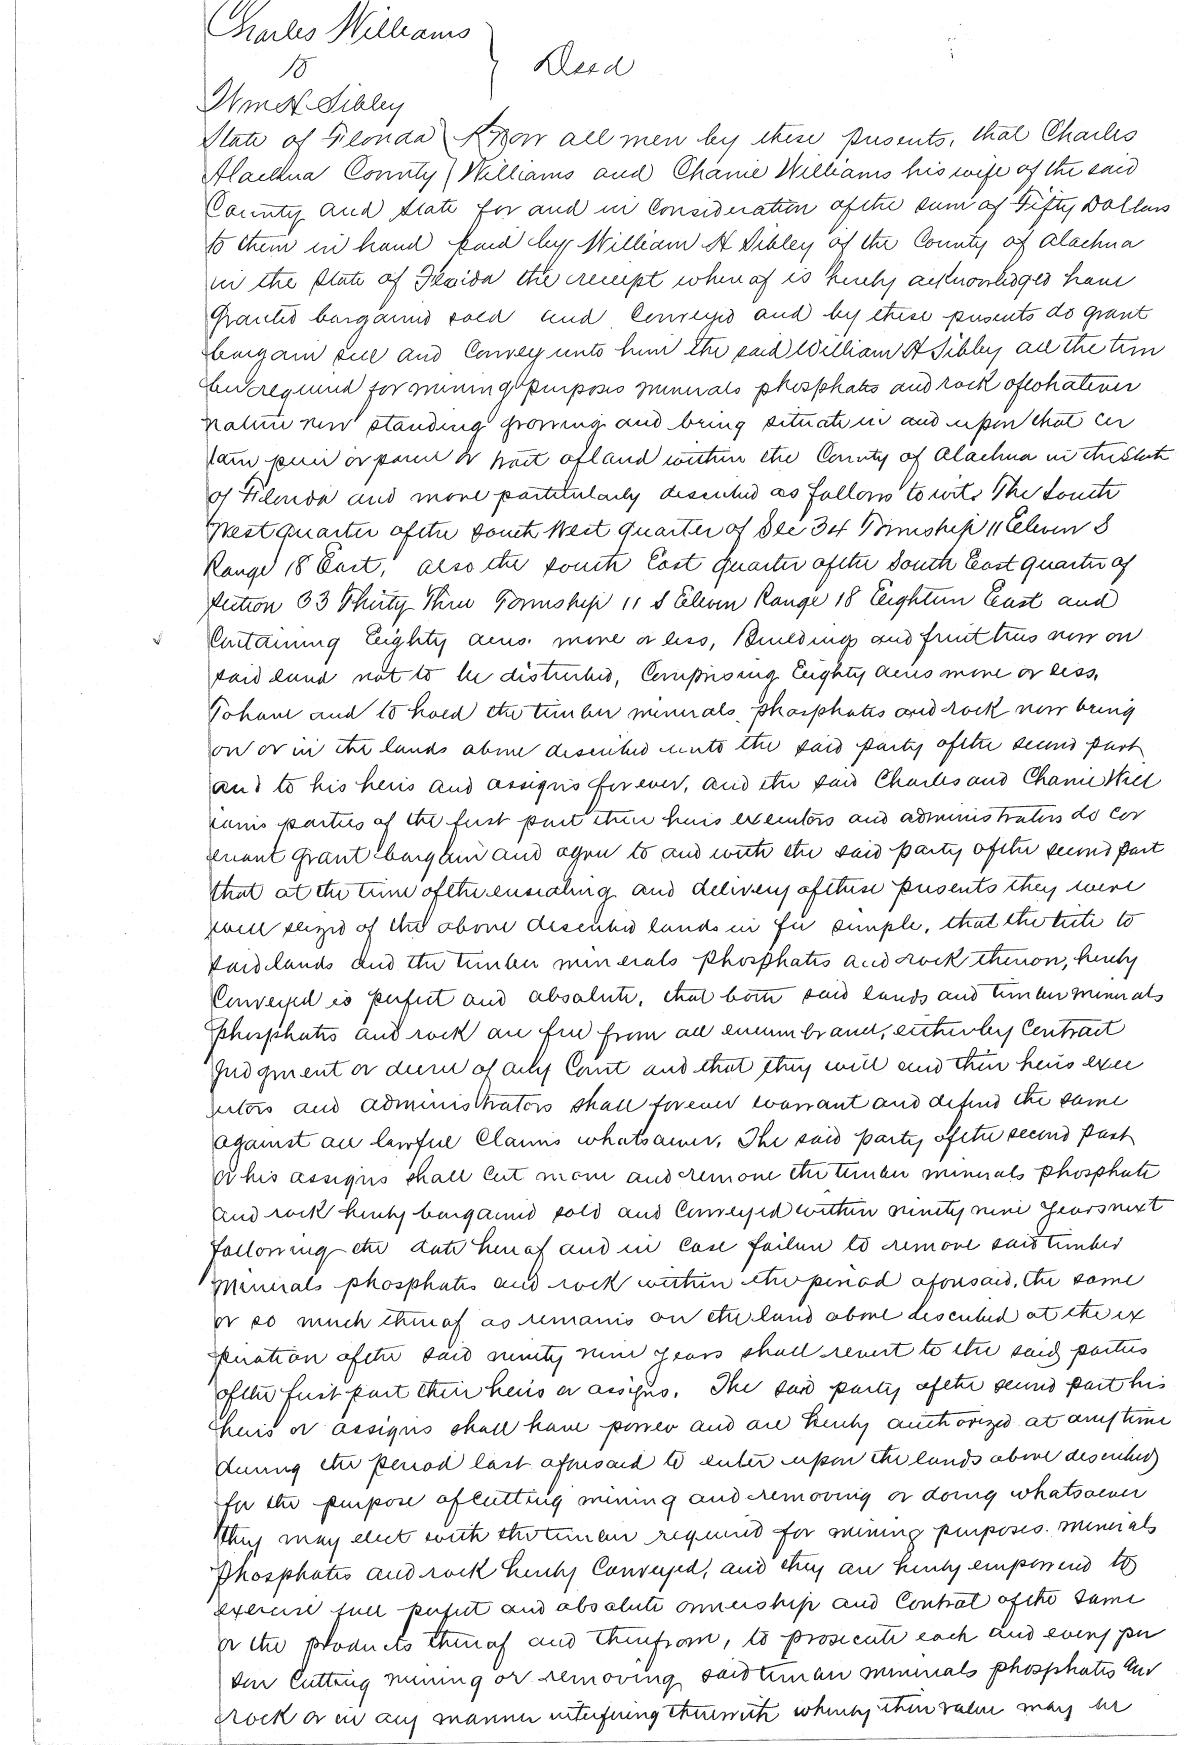 Charles Williams
to } Deed
Wm H Sibley
State of Florida } Know all men by these presents, that Charles
Alachua County } Williams and Chanie Williams his wife of the said
County and State for and in consideration of the sum of Fifty Dollars
to them in hand paid by William H Sibley of the County of Alachua
in the State of Florida the receipt whereof is hereby acknowledged have
Granted bargained sold and conveyed and by these presents do grant
bargain sell and convey unto him the said William H Sibley all the tim
ber required for mining purposes minerals phosphates and rock of whatever
nature now standing growing and being situate in and upon that cer
tain piece or parcel or tract of land within the County of Alachua in the State
of Florida and more particularly described as follows to wit. The South
West quarter of the South West quarter of Sec 34 Township 11 Eleven S
Range 18 East, also the South East quarter of the South East quarter of
Section 33 Thirty Three Township 11 S Eleven Range 18 Eighteen East and
Containing Eighty acres. more or less, Buildings and fruit trees now on
said land not to be disturbed, Comprising Eighty acres more or less.
To have and to hold the timber minerals phosphates and rock now being
on or in the lands above described unto the said party of the second part
and to his heirs and assigns forever, and the said Charles and Chanie Will
iams parties of the first part their heirs executors and administrators do cov
enant grant bargain and agree to and with the said party of the second part
that at the time of the ensealing and delivery of these presents they were
well seized of the above described lands in fee simple, that the title to
said lands and the timber minerals phosphates and rock thereon, hereby
Conveyed is perfect and absolute, that both said lands and timber minerals
phosphates and rock are free from all encumbrance, either by Contract
Judgment or decree of any Court and that they will and their heirs exec
utors and administrators shall forever warrant and defend the same
against all lawful Claims whatsoever. The said party of the second part
or his assigns shall cut mine and remove the timber minerals phosphate
and rock hereby bargained sold and Conveyed within ninety nine years next
following the date hereof and in case failure to remove said timber
Minerals phosphates and rock within the period aforesaid, the same
or so much thereof as remains on the land above described at the ex
piration of the said ninety nine years shall revert to the said parties
of the first part their heirs or assigns. The said party of the second part his
heirs or assigns shall have power and are hereby authorized at any time
during the period last aforesaid to enter upon the lands above described
for the purpose of cutting mining and removing or doing whatsoever
they may elect with the timber required for mining purposes. minerals
Phosphates and rock hereby Conveyed, and they are hereby empowered to
exercise full perfect and absolute ownership and Control of the same
or the products thereof and therefrom, to prosecute each and every per
son Cutting mining or removing said timber minerals phosphates and
rock or in any manner interfering therewith whereby their value may be